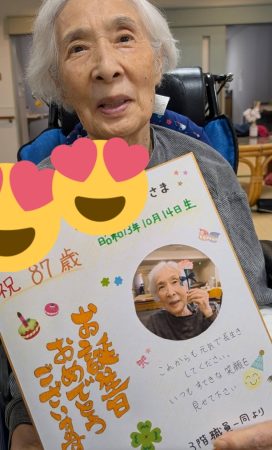 さま
昭和13年10月14日生
祝 87歳
お誕生日
おめでとう
ございます
これからも元気で長生き
してください。
いつもすてきな笑顔を
見せて下さい
3階職員一同より